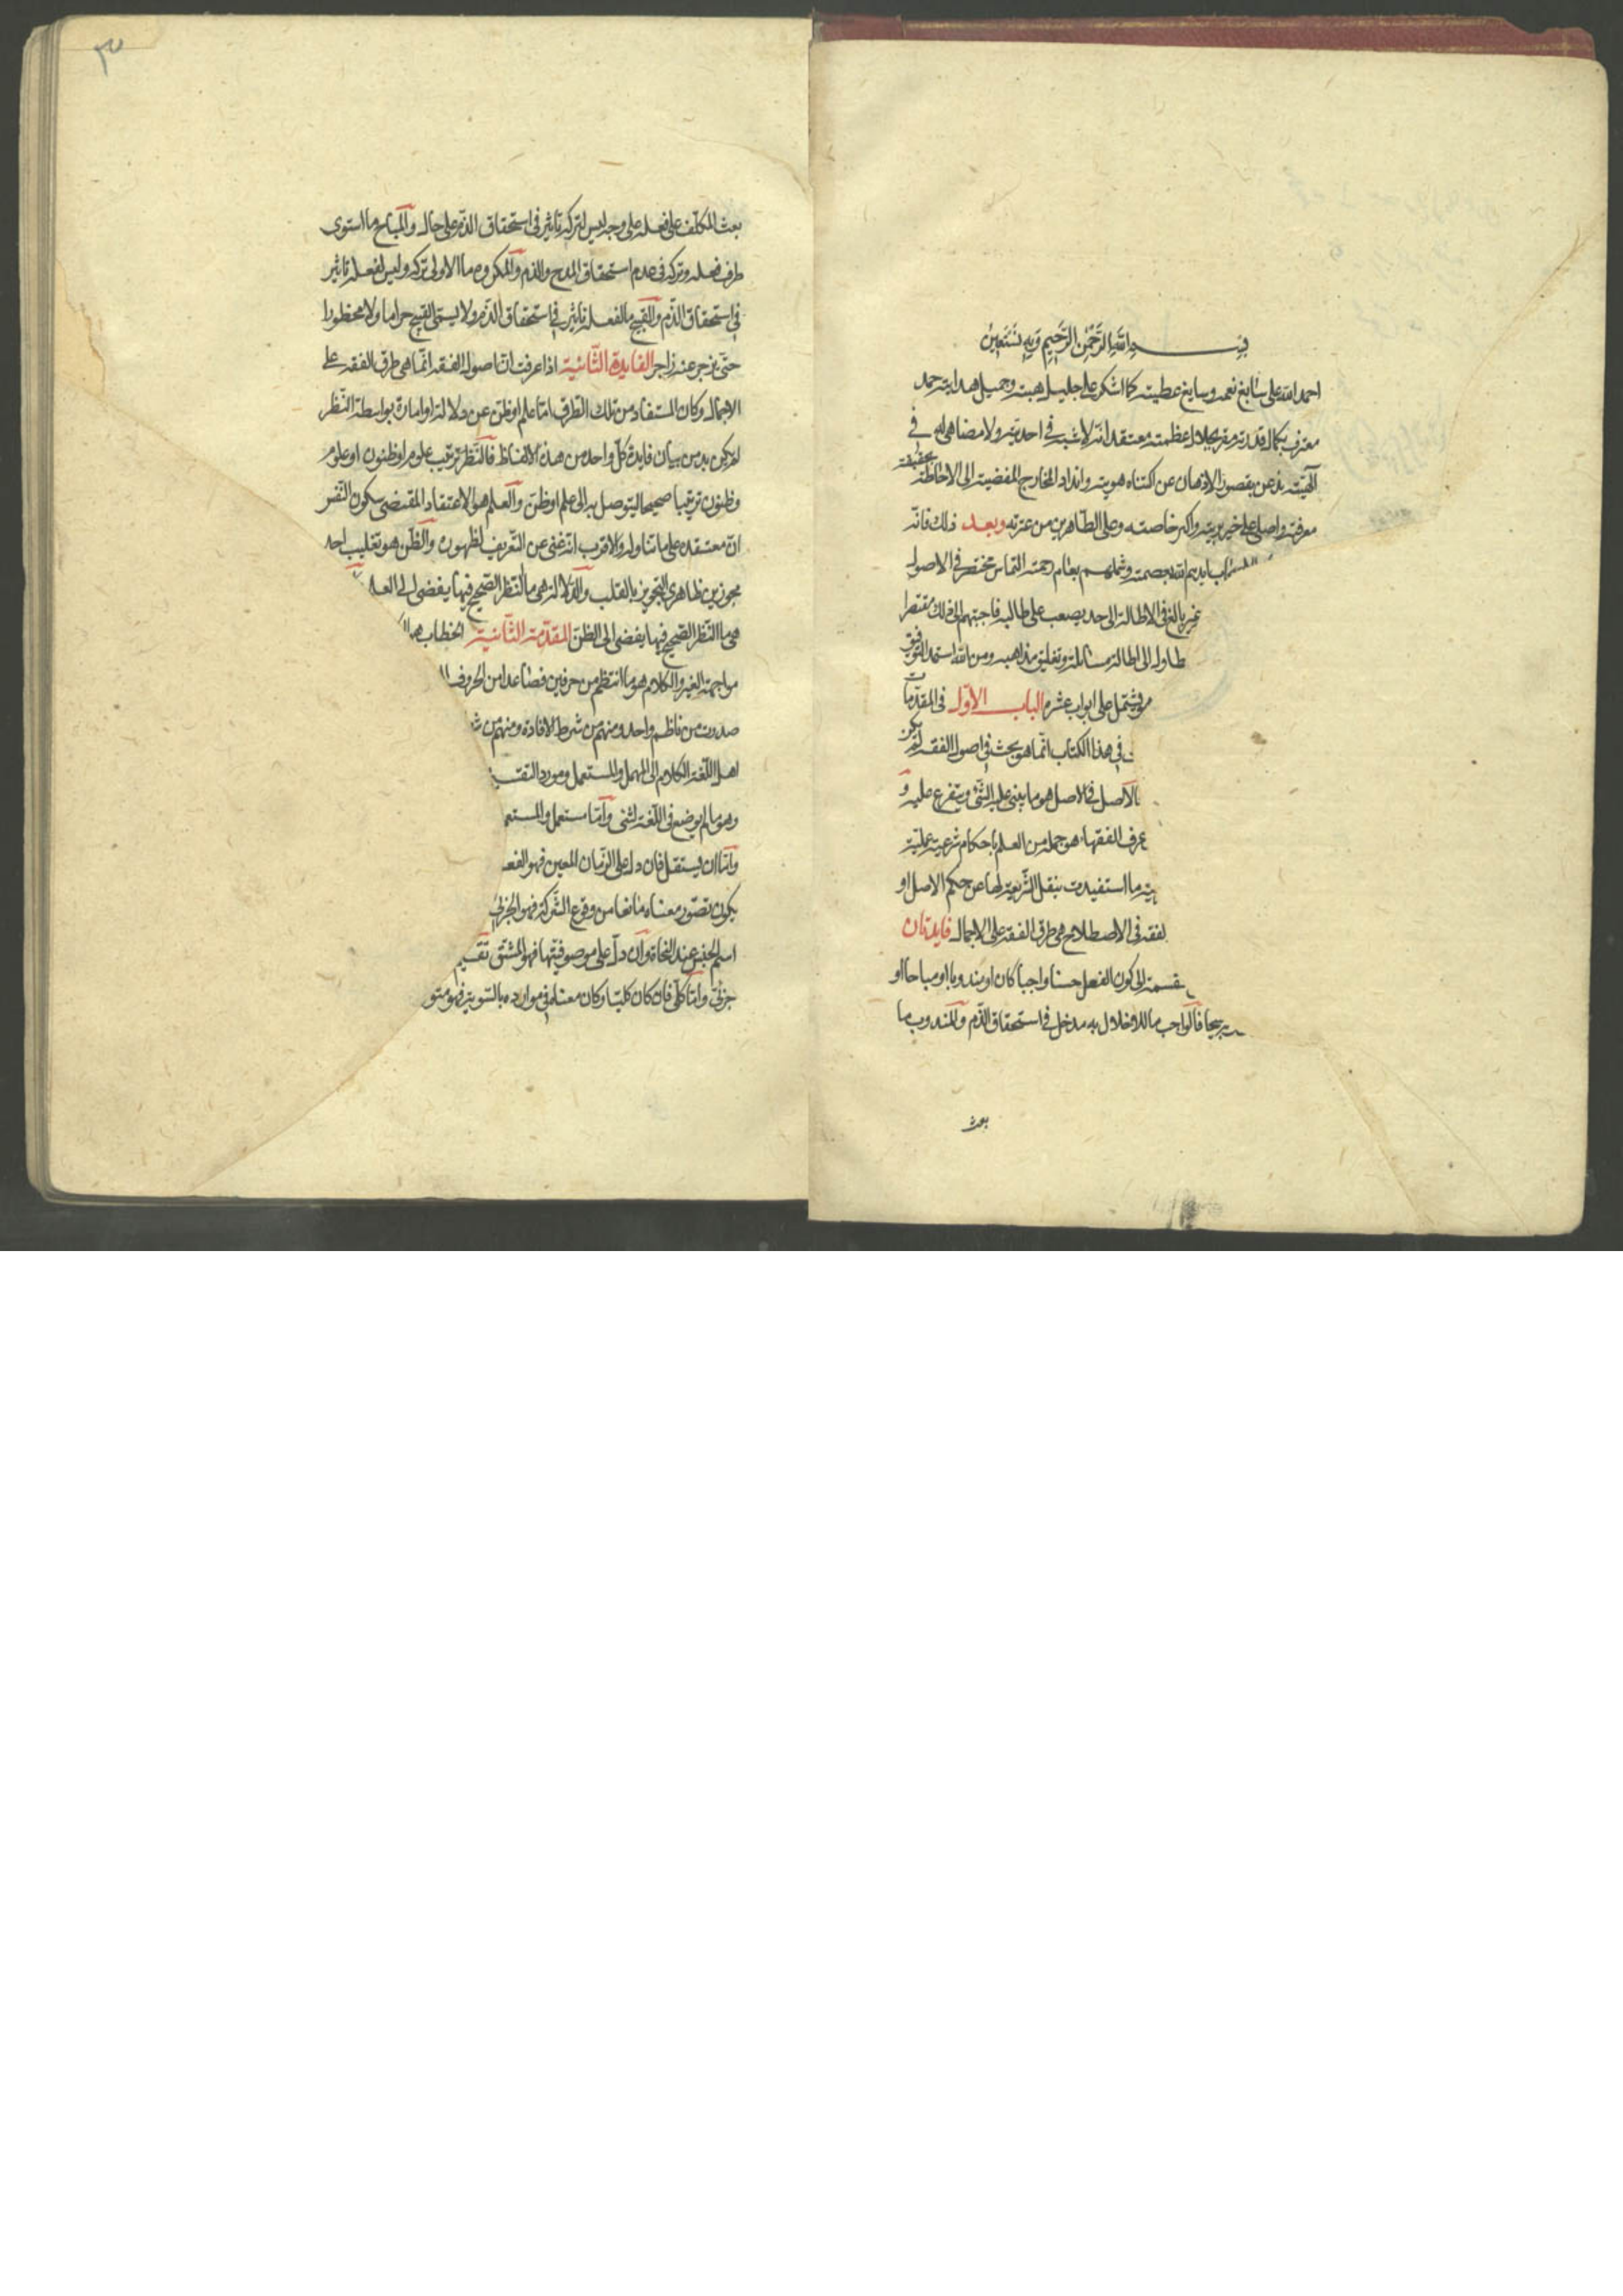 بسم الله الرحمن الرحيم وبه نستعين
احمد الله على سابغ نعمه وسايغ عطيته كما اشكره على جليل هبته وجميل هدايته حمد
معترف بكمال قدرته مقر بجلال عظمته معتقد انه لا شبيه في احديته ولا مضاهي له في
آلهيته مذعن بقصور الاذهان عن اكتناه هويته وانداد المخارج المفضية الى الاحاطة بحقيقة
معرفته واصلى على خير بريته واكبر خاصته وعلى الطاهرين من عترته وبعد ذلك فانه
ايديهم الله بعصمته وشملهم بعام رحمته التماس مختصر في الاصول
غير بالغ في الاطالة الى حد يصعب على طالبه فاجبتهم الى ذلك مقتصرا
طاول الى اطالة مسائله وتغليق مذاهبه ومن الله استمد التوفيق
يشتمل على ابواب عشره الباب الاول في المقدمات
في هذا الكتاب انما هو بحث في اصول الفقه لم يكن
الاصل في الاصل هو ما يبنى عليه الشئ ويتفرع عليه و
عرف الفقهاء هو جملة من العلم باحكام شرعية عملية
ما استفيدت بنقل الشريعة لها عن حكم الاصل او
لفقه في الاصطلاح هى طرق الفقه على الاجمال فايدتان
قسمته الى كون الفعل حسنا واجبا كان او مندوبا او مباحا او
قبيحا فالواجب ما للاخلال به مدخل في استحقاق الذم والمندوب ما
بعث
٣
بعث المكلف على فعله على وجه ليس لتركه تاثير في استحقاق الذم على حال والمباح ما استوى
طرف فعله وتركه في عدم استحقاق المدح والذم والمكروه ما الاولى تركه وليس لفعله تاثير
في استحقاق الذم والقبيح ما لفعله تاثير في استحقاق الذم ولا يسمى القبيح حراما ولا محظورا
حتى يزجر عنه زاجر الفايدة الثانية اذا عرفت ان اصول الفقه انما هي طرق الفقه على
الاجمال وكان المستفاد من تلك الطرق اما علم او ظن عن دلالة او امارة بواسطة النظر
لم يكن بد من بيان فايدة كل واحد من هذه الالفاظ فالنظر ترتيب علوم او ظنون او علوم
وظنون ترتيبا صحيحا ليتوصل به الى علم او ظن والعلم هو الاعتقاد المقتضى سكون النفس
ان معتقده على ما تناوله والاقرب انه غنى عن التعريف لظهوره والظن هو تغليب احد
مجوزين ظاهري التجويز بالقلب والدلالة هي ما النظر الصحيح فيها يفضى الى العلم
هى ما النظر الصحيح فيها يفضى الى الظن المقدمة الثانية الخطاب هو
مواجهة الغير والكلام هو ما انتظم من حرفين فصاعدا من الحروف
صدرت من ناظم واحد ومنهم من شرط الافادة ومنهم من
اهل اللغة الكلام الى المهمل والمستعمل ومورد التقسيم
وهو ما لم يوضع في اللغة لشئ واما مستعمل والمستعمل
واما ان يستقل فان دل على الزمان المعين فهو الفعل
يكون تصور معناه مانعا من وقوع الشركة فهو الجزئى
اسم الجنس عند النحاة وان دل على موصوفيتها فهو المشتق تقسيم
جزئى واما كلى فان كان كليا وكان معناه في موارده بالسوية فهو متو